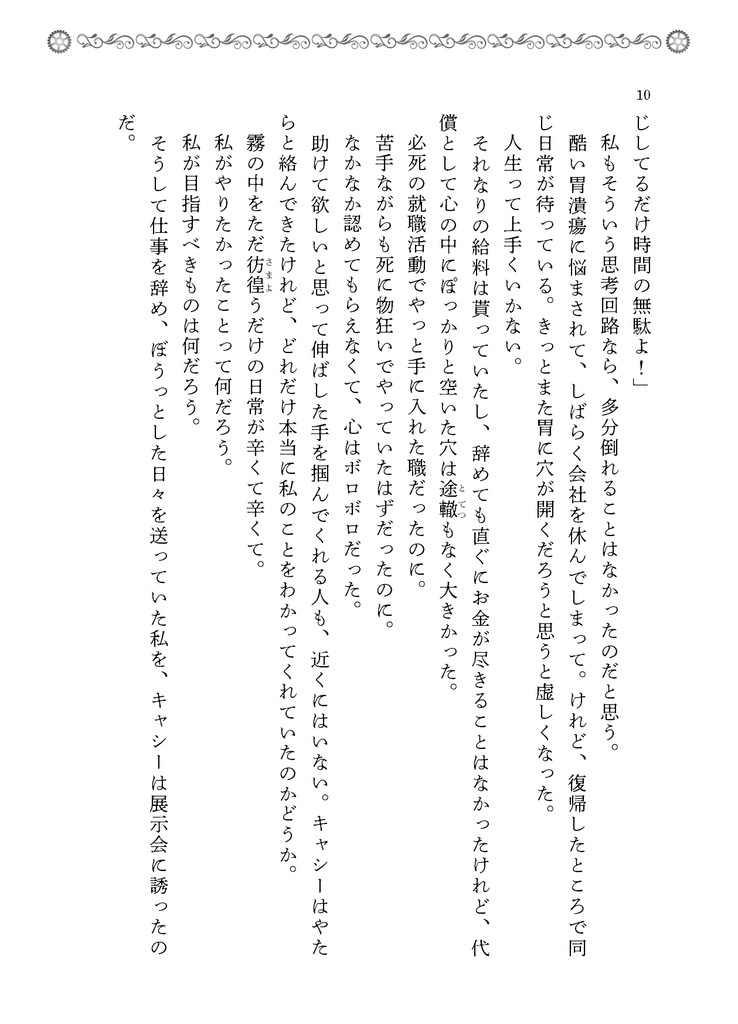 10
じしてるだけ時間の無駄よ！」
私もそういう思考回路なら、多分倒れることはなかったのだと思う。
酷い胃潰瘍に悩まされて、しばらく会社を休んでしまって。けれど、復帰したところで同
じ日常が待っている。きっとまた胃に穴が開くだろうと思うと虚しくなった。
人生って上手くいかない。
それなりの給料は貰っていたし、辞めても直ぐにお金が尽きることはなかったけれど、代
償として心の中にぽっかりと空いた穴は途轍もなく大きかった。
とてつ
必死の就職活動でやっと手に入れた職だったのに。
苦手ながらも死に物狂いでやっていたはずだったのに。
なかなか認めてもらえなくて、心はボロボロだった。
助けて欲しいと思って伸ばした手を掴んでくれる人も、近くにはいない。キャシーはやた
らと絡んできたけれど、どれだけ本当に私のことをわかってくれていたのかどうか。
霧の中をただ彷徨うだけの日常が辛くて辛くて。
さまよ
私がやりたかったことって何だろう。
私が目指すべきものは何だろう。
そうして仕事を辞め、ぼうっとした日々を送っていた私を、キャシーは展示会に誘ったの
だ。